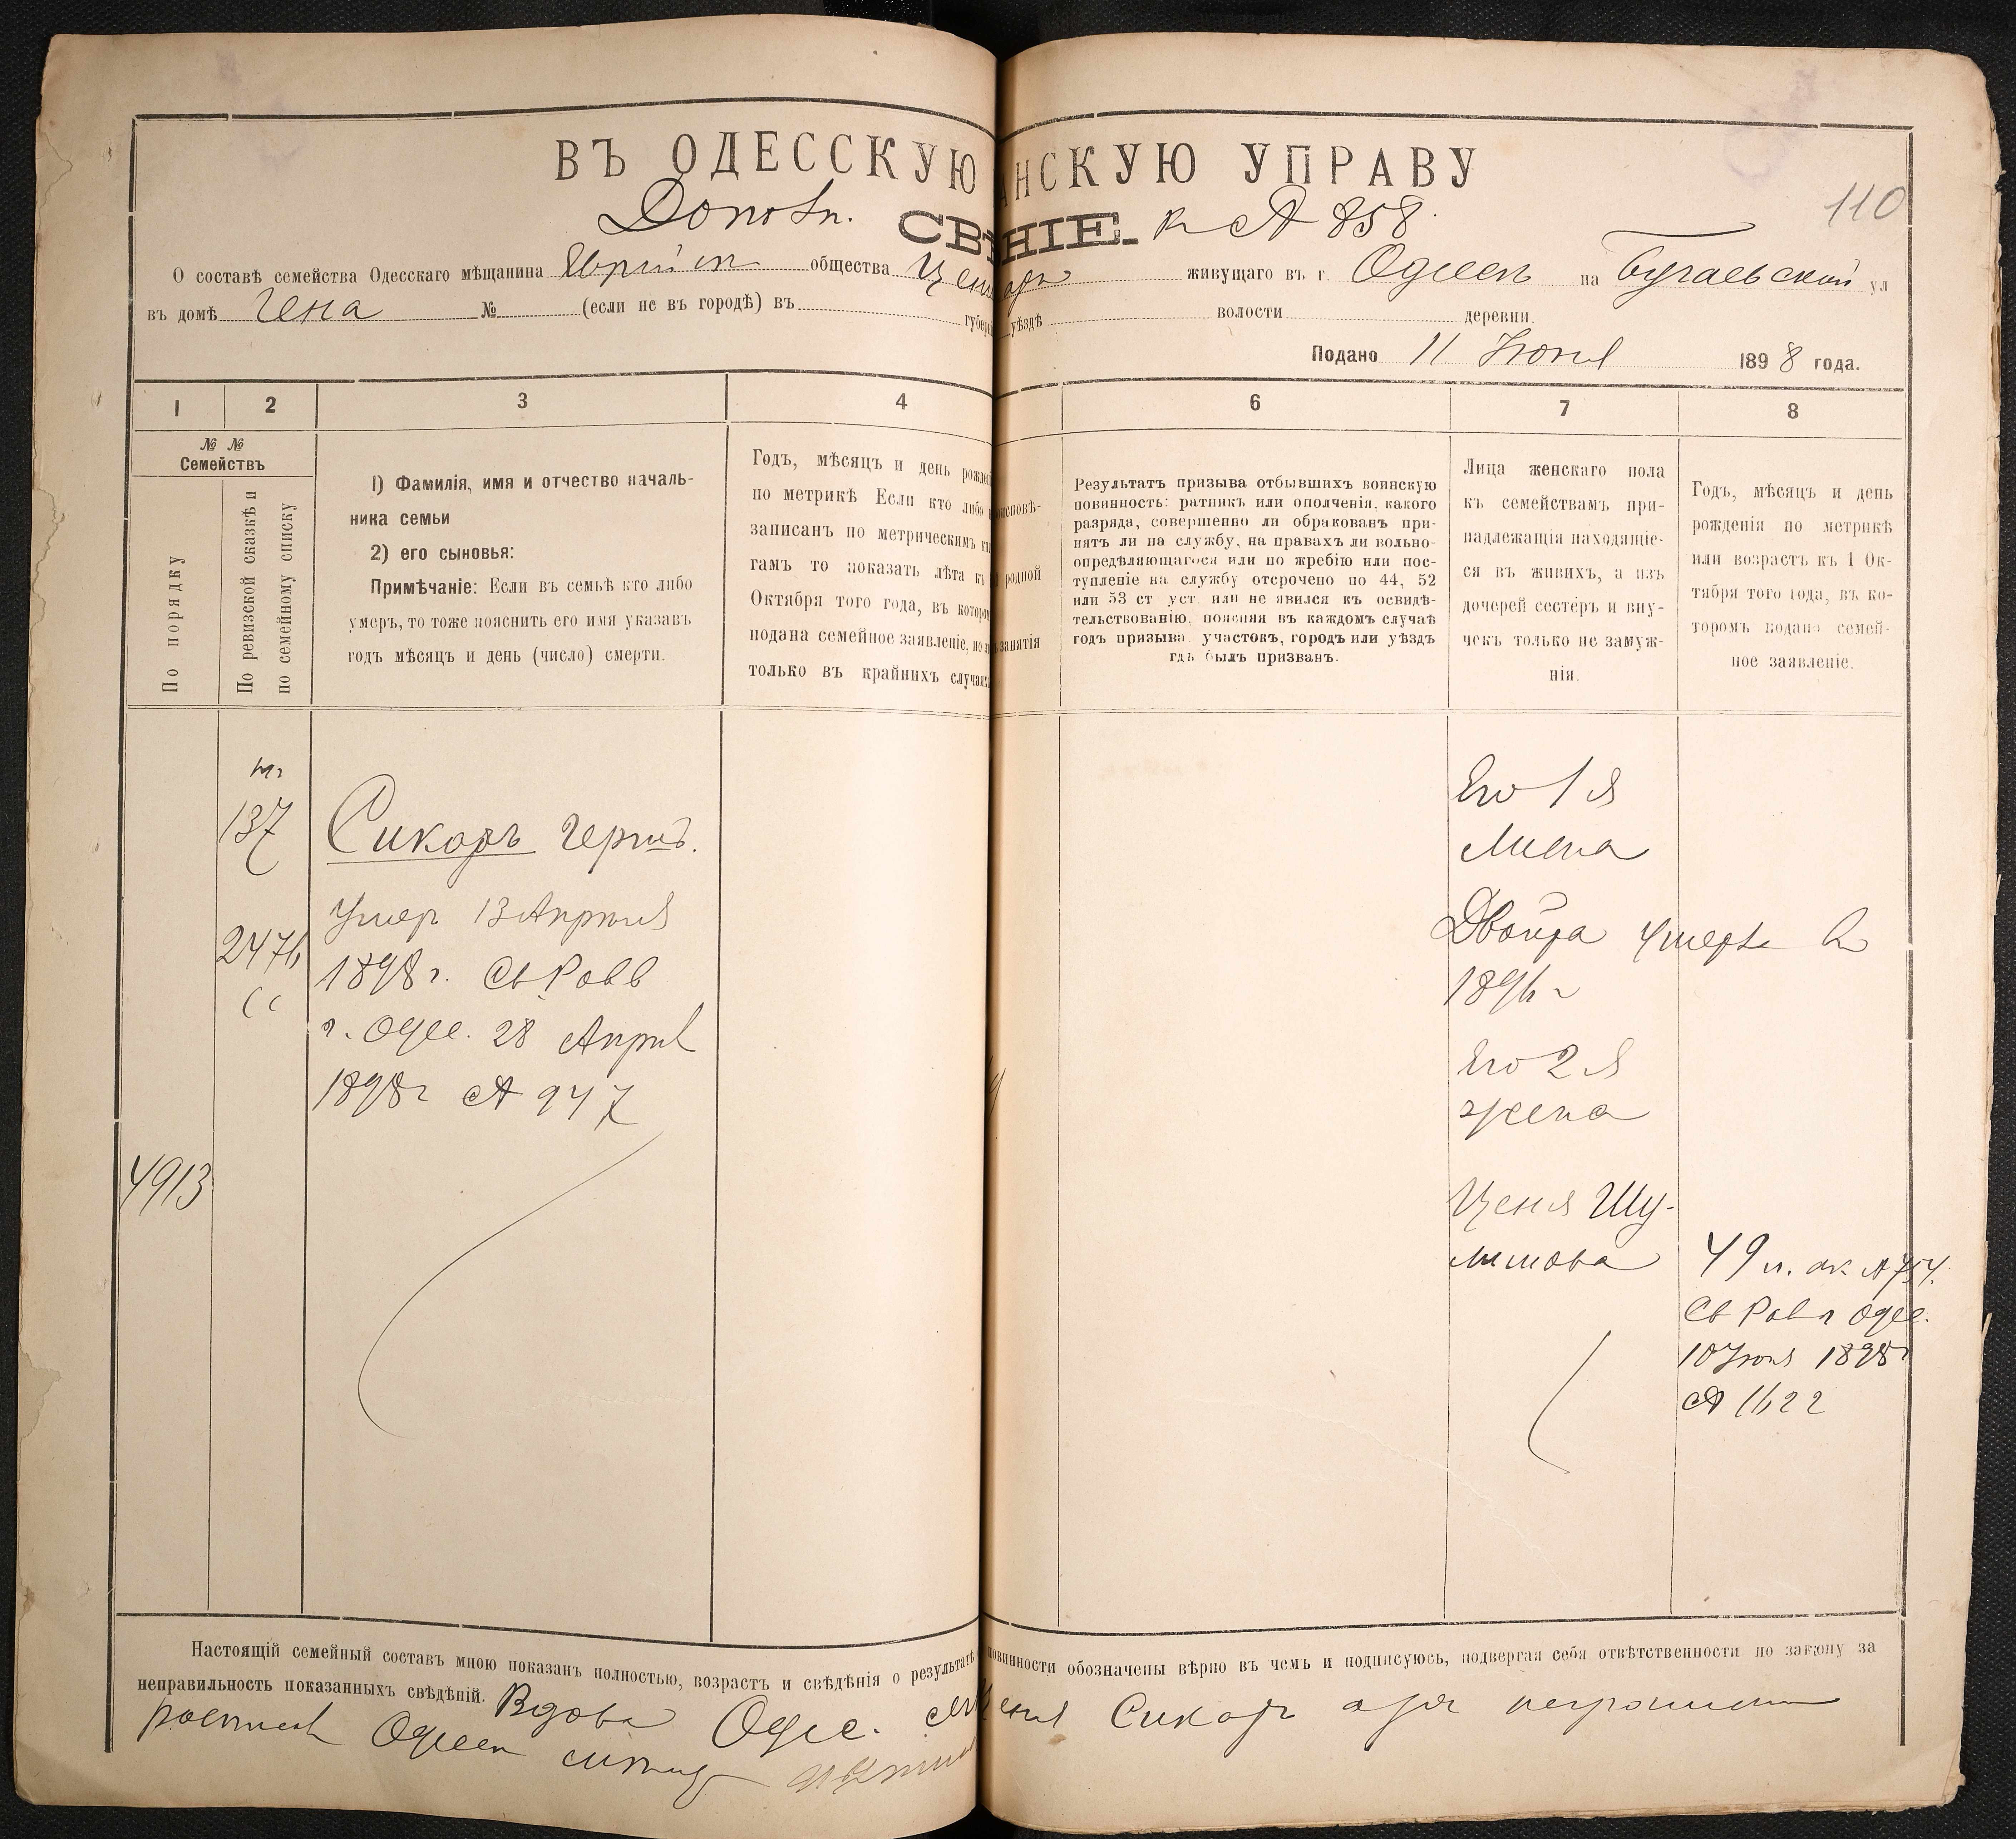 ВЪ ОДЕССКУЮ АНСКУЮ УПРАВУ
110
СВ НІЕ. к № 858
О составѣ семейства Одесскаго мѣщанина общества живущаго въ г Одессѣ на Бугаевской ул
въ домѣ Гена № (если не въ городѣ) въ губер уѣздѣ волости деревни
Подано 11 Іюня 1898 года.
1 2 3 4 6 7 8
№ №
Семействъ
По порядку
По ревизской сказкѣ и
по семейному списку
1) Фамилія, имя и отчество началь-
ника семьи
2) его сыновья:
Примѣчаніе: Если въ семьѣ кто либо
умеръ, то тоже пояснить его имя указавъ
годъ мѣсяцъ и день (число) смерти.
Годъ, мѣсяцъ и день рожден
по метрикѣ Если кто либо
записанъ по метрическимъ кни
гамъ то показать лѣта къ
Октября того года, въ котором
подана семейное заявленіе, но э
только въ крайнихъ случаях
оисповѣ-
родной
занятія
Результатъ призыва отбывшихъ воинскую
повинность: ратникъ или ополченія, какого
разряда, совершенно ли обракованъ при-
нятъ ли на службу, на правахъ ли вольно-
опредѣляющагося или по жребію или пос-
тупленіе на службу отсрочено по 44, 52
или 53 ст уст. или не явился къ освидѣ-
тельствованію, поясняя въ каждомъ случаѣ
годъ призыва участокъ, городъ или уѣздъ
гдѣ былъ призванъ.
Лица женскаго пола
къ семействамъ при-
надлежащія находящіе-
ся въ живихъ, а изъ
дочерей сестеръ и вну-
чекъ только не замуж-
нія.
Годъ, мѣсяцъ и день
рожденія по метрикѣ
или возрастъ къ 1 Ок-
тября того года, въ ко-
торомъ подано семей-
ное заявленіе.
137
2476
4913
Сикоръ Герш.
Умер 13 Апрѣля
1898 г. Св Равв
г. Одес. 28 Апрѣл
1898 г № 947
Его 1я
жена
Двойра умерла в
1896 г
Его 2я
жена
Ценя Шу-
лимова
49 л.
Св Рав г Одес.
10 Іюня 1898 г
№ 1622
Настоящій семейный составъ мною показанъ полностью, возрастъ и свѣдѣнія о результатѣ повинности обозначены вѣрно въ чемъ и подписуюсь, подвергая себя отвѣтственности по закону за
неправильность показанныхъ свѣдѣній. Вдова Одес. Сикоръ